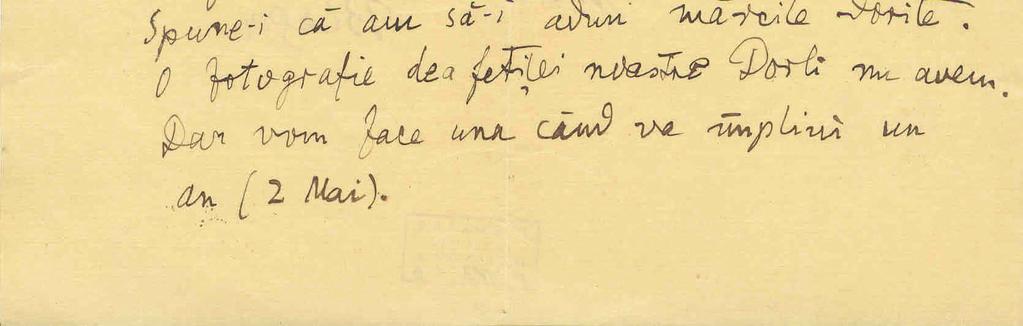 Spune-i că am să-i adun mărcile dorite.
O fotografie dea fetiței noastre Dorli nu avem.
Dar vom face una când va împlini un
an (2 Mai).